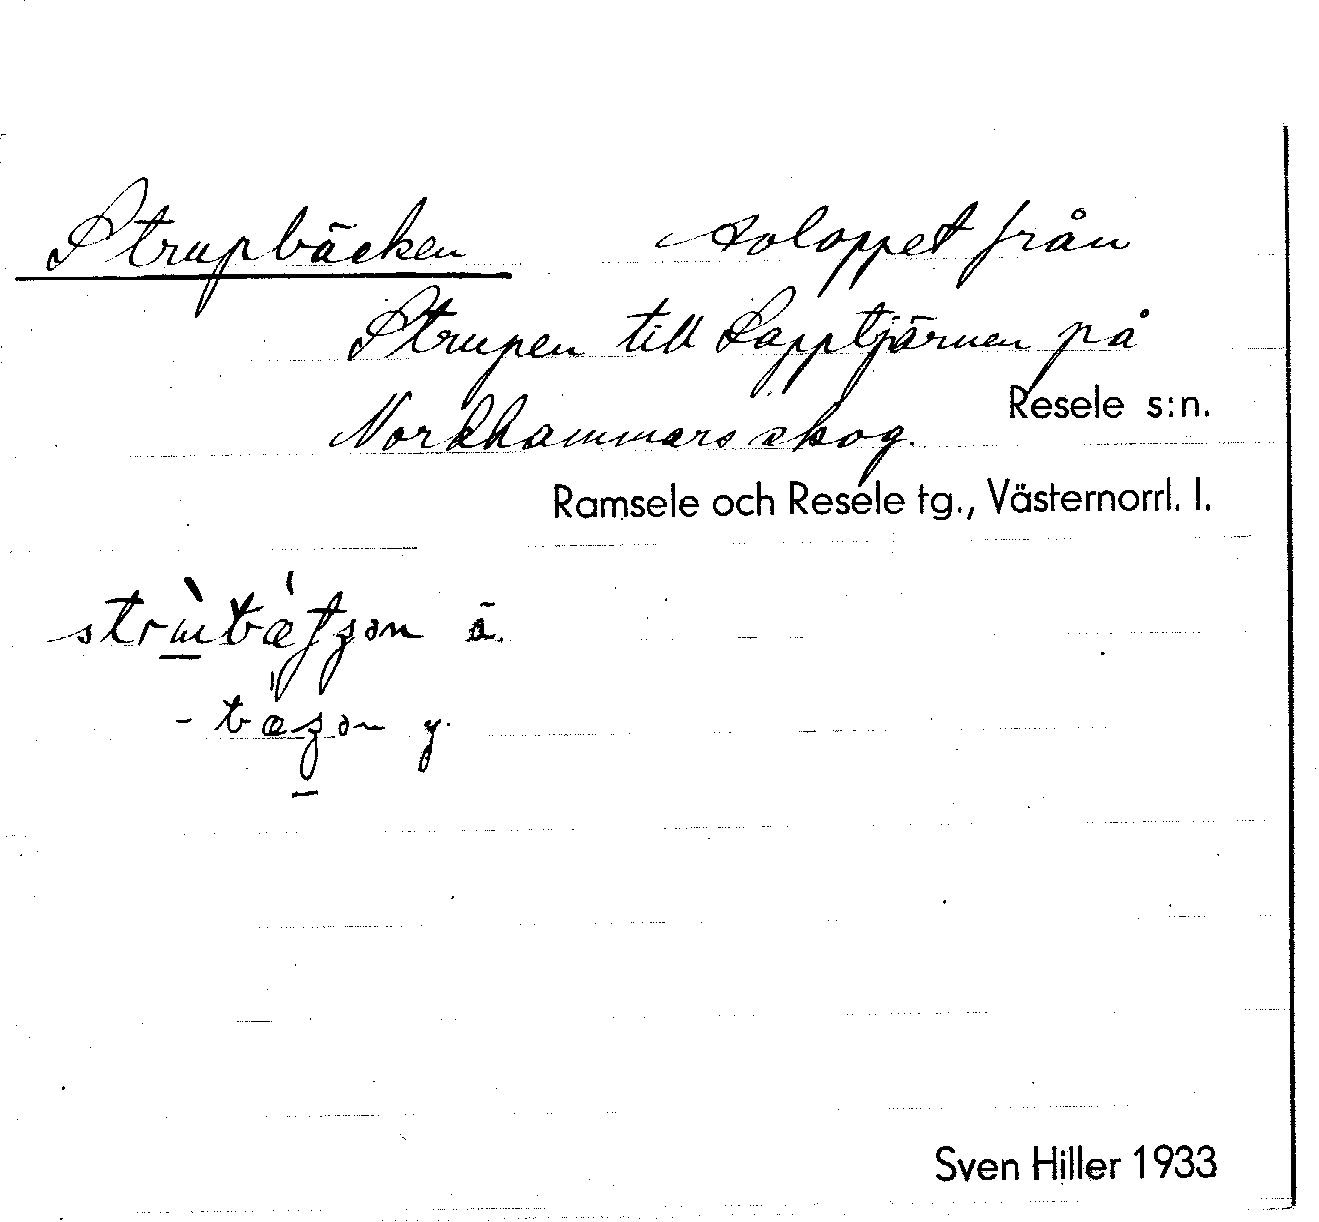 Strupbäcken Avloppet från
Strupen till Lapptjärnen på
Nordhammars skog.
Resele s:n.
Ramsele och Resele tg., Västernorrl. l.
ä.
y.
Sven Hiller 1933